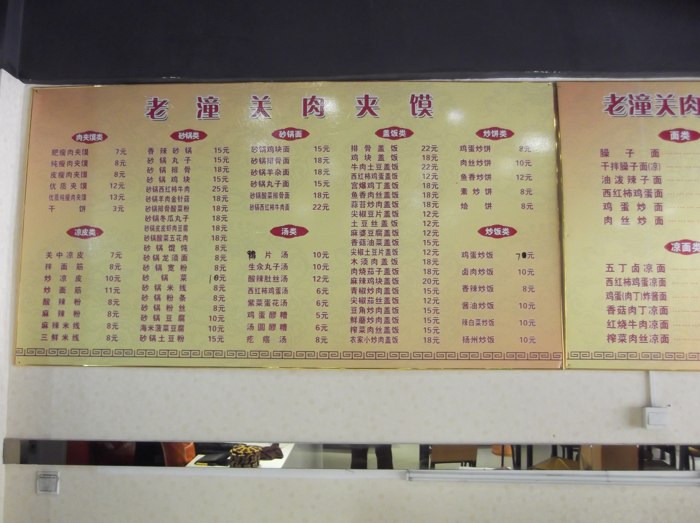 老潼关肉夹馍
肉夹馍类
肥瘦肉夹馍 7元
纯瘦肉夹馍 8元
皮瘦肉夹馍 8元
优质夹馍 12元
优质纯瘦肉夹馍 13元
干饼 3元
凉皮类
关中凉皮 7元
拌面筋 8元
炒凉皮 10元
炒面筋 11元
酸辣粉 8元
麻辣粉 8元
麻辣米线 8元
三鲜米线 8元
砂锅类
香辣砂锅 15元
砂锅丸子 15元
砂锅排骨 18元
砂锅鸡块 15元
砂锅西红柿牛肉 25元
砂锅羊肉金针菇 18元
砂锅排骨酸菜粉 18元
砂锅冬瓜丸子 18元
砂锅皮皮虾肉豆腐 18元
砂锅酸菜五花肉 18元
砂锅馄饨 8元
砂锅龙须面 8元
砂锅宽粉 8元
砂锅菜 10元
砂锅米线 8元
砂锅粉条 8元
砂锅粉丝 8元
砂锅豆腐 10元
海米菠菜豆腐 10元
砂锅土豆粉 15元
砂锅面
砂锅鸡块面 15元
砂锅排骨面 18元
砂锅羊杂面 18元
砂锅丸子面 15元
砂锅酸菜排骨面 18元
砂锅西红柿牛肉面 22元
汤类
鸭片汤 10元
生汆丸子汤 10元
酸辣肚丝汤 12元
西红柿鸡蛋汤 6元
紫菜蛋花汤 6元
鸡蛋醪糟 5元
汤圆醪糟 6元
疙瘩汤 8元
盖饭类
排骨盖饭 22元
鸡块盖饭 18元
牛肉土豆盖饭 18元
西红柿鸡蛋盖饭 12元
宫爆鸡丁盖饭 18元
鱼香肉丝盖饭 18元
蒜苔炒肉盖饭 18元
尖椒豆片盖饭 12元
土豆丝盖饭 12元
麻婆豆腐盖饭 12元
香菇油菜盖饭 15元
尖椒土豆片盖饭 12元
木须肉盖饭 18元
肉烧茄子盖饭 18元
麻辣鸡块盖饭 20元
青椒炒肉盖饭 15元
尖椒茄丝盖饭 12元
豆角炒肉盖饭 15元
鲜蘑炒肉盖饭 15元
榨菜肉丝盖饭 15元
农家小炒肉盖饭 18元
炒饼类
鸡蛋炒饼 8元
肉丝炒饼 10元
鱼香炒饼 12元
素炒饼 8元
烩饼 8元
炒饭类
鸡蛋炒饭 7元
卤肉炒饭 10元
香辣炒饭 8元
酱油炒饭 10元
辣白菜炒饭 10元
扬州炒饭 10元
老潼关肉
面类
臊子面
干拌臊子面(凉)
油泼辣子面
西红柿鸡蛋面
鸡蛋炒面
肉丝炒面
凉面类
五丁卤凉面
西红柿鸡蛋凉面
鸡蛋(肉丁)炸酱面
香菇肉丁凉面
红烧牛肉凉面
榨菜肉丝凉面